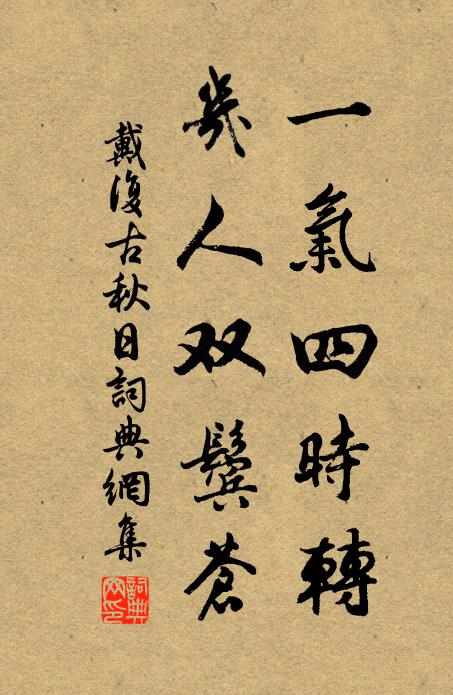 一氣四時轉
幾人双鬢蒼
戴復古秋日詞典網集
詞典網印